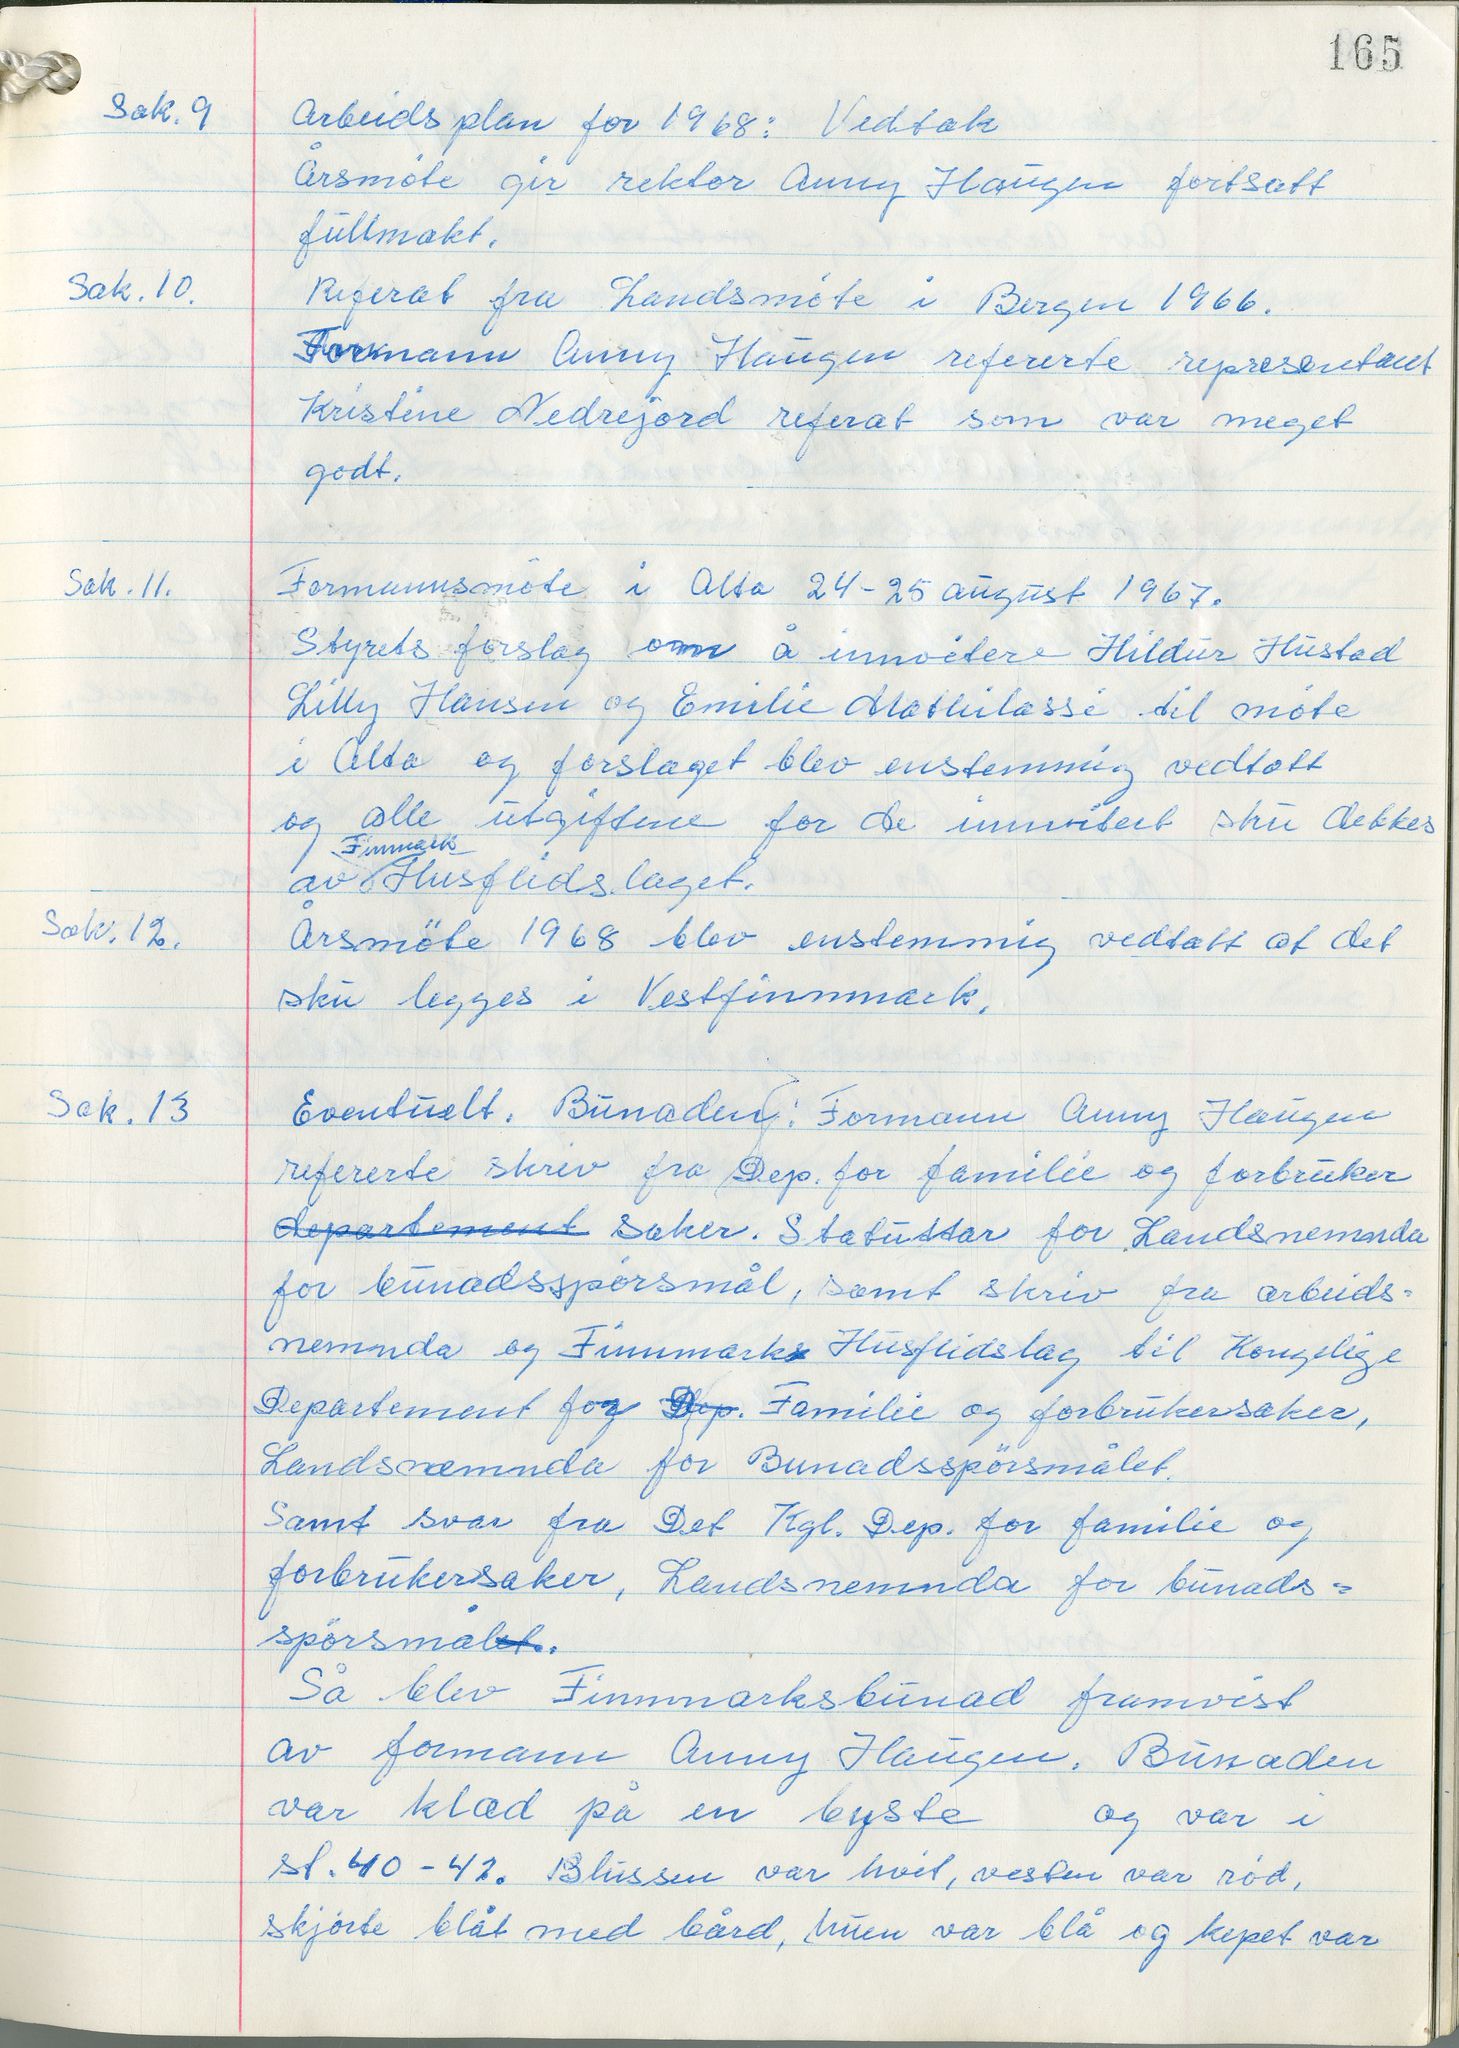 165
Sak. 9 Arbeidsplan for 1968: Vedtak
Årsmöte gir rektor Anny Haugen fortsatt
fullmakt.
Sak. 10. Referat fra Landsmöte i Bergen 1966.
Formann Anny Haugen refererte representant
Kristine Nedrejord referat som var meget
godt.
Sak. 11. Formannsmöte i Alta 24-25 august 1967.
Styrets forslag om å innvitere Hildur Hustad
Lilly Hansen og Emilie Mathilassi til möte
i Alta og forslaget blev enstemmig vedtatt
og alle utgiftene for de innvitert sku dekkes
av Finmark Husflidslaget.
Sak. 12. Årsmöte 1968 blev enstemmig vedtatt at det
sku legges i Vestfinnmark.
Sak. 13 Eventuelt. Bunaden: Formann Anny Haugen
refererte skriv fra Dep. for familie og forbruker
departement saker. Statuttar for Landsnemnda
for bunadsspörsmål, samt skriv fra arbeids=
nemnda og Finnmark Husflidslag til Kongelige
Departement for Dep. Familie og forbrukersaker,
Landsnemnda for Bunadsspörsmålet.
Samt svar fra Det Kgl. Dep. for familie og
forbrukersaker, Landsnemnda for bunads=
spörsmålet.
Så blev Finnmarksbunad framvist
av formann Anny Haugen. Bunaden
var klæd på en byste og var i
st. 40-42. Blussen var hvit, vesten var röd,
skjörte blåt med bård, huen var blå og kepet var